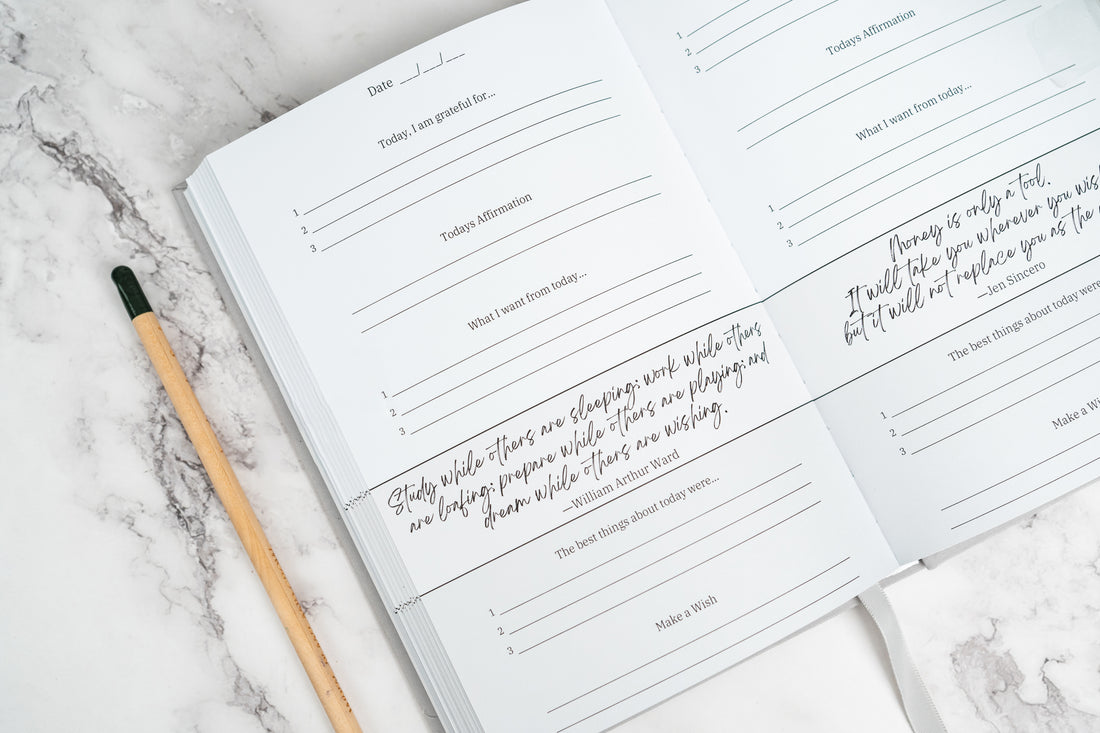 Date __/__/__
Today, I am grateful for...
1
2
3
Todays Affirmation
What I want from today...
1
2
3
Study while others are sleeping; work while others
are loafing; prepare while others are playing; and
dream while others are wishing.
—William Arthur Ward
The best things about today were...
1
2
3
Make a Wish
1
2
3
Todays Affirmation
What I want from today...
1
2
3
Money is only a tool.
It will take you wherever you wish
but it will not replace you as the
—Jen Sincero
The best things about today were
1
2
3
Make a Wi